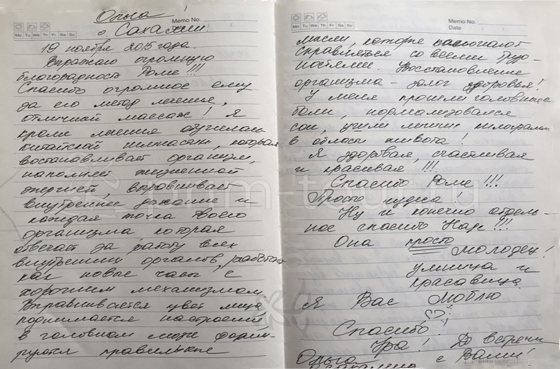 Ольга
о. Сахалин
Memo No.
19 ноября 2015 года
Выражаю огромную
благодарность Роме!!!
Спасибо огромное ему
да его метод лечения,
отличный массаж! Я
кроме лечения обучилась
китайской гимнастике, которая
восстанавливает организм,
наполняет жизненной
энергией, вправивает
внутреннее дыхание и
каждая точка твоего
организма, которая
отвечает за работу всех
внутренних органов, работает
как новые часы с
хорошим механизмом,
Выравнивается цвет лица,
поднимается настроение,
в головном мозге форми-
руются правильные
Memo No.
Date
мысли, которые помогают
справляться со всеми труд-
ностями. Восстановление
организма - залог здоровья!
У меня прошли головные
боли, нормализовался
сон, ушли лишние килограммы
в области живота!
Я здоровая, счастливая
и красивая!!!
Спасибо Роме!!!
Просто чудо
Ну и конечно отдель-
ное спасибо Наде!!!
Она просто
молодец,
умница и
красавица
Я Вас люблю
Спасибо!
Ура! До встречи
Ольга с Вами!